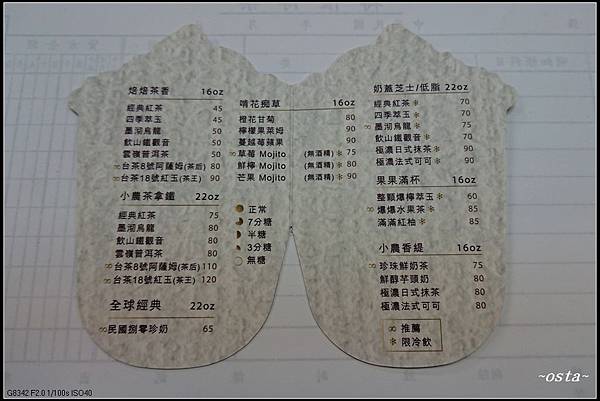 焙焙茶香 16oz
經典紅茶 45
四季萃玉 45
墨沏烏龍 50
飲山鐵觀音 50
雲嶺普洱茶 50
∞台茶8號阿薩姆(茶后) 80
∞台茶18號紅玉(茶王) 90
小農茶拿鐵 22oz
經典紅茶 75
墨沏烏龍 80
飲山鐵觀音 80
雲嶺普洱茶 80
∞台茶8號阿薩姆(茶后) 110
∞台茶18號紅玉(茶王) 120
全球經典 22oz
∞民國捌零珍奶 65
啃花癡草 16oz
橙花甘菊 80
檸檬果萊姆 90
蔓越莓蘋果 90
∞草莓 Mojito (無酒精)* 75
鮮檸 Mojito (無酒精)* 80
芒果 Mojito (無酒精)* 90
正常
7分糖
半糖
3分糖
無糖
奶蓋芝士/低脂 22oz
經典紅茶* 70
四季萃玉* 70
∞墨沏烏龍* 75
飲山鐵觀音* 70
極濃日式抹茶* 80
極濃法式可可* 80
果果滿杯 16oz
整顆爆檸萃玉* 60
∞爆爆水果茶* 85
滿滿紅柚* 85
小農香緹 16oz
∞珍珠鮮奶茶 75
鮮醇芋頭奶 80
極濃日式抹茶 80
極濃法式可可 85
∞ 推薦
* 限冷飲
~osta~
G8342 F2.0 1/100s ISO40